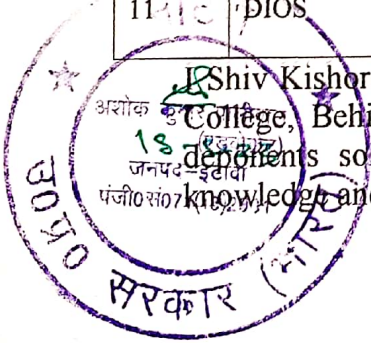 11 DIOS
I Shiv Kishor
College, Behi
deponents so
knowledge and
अशोक कुमार
18
जनपद-इटावा
पंजी0सं07
उ०प्र० सरकार (भारत)